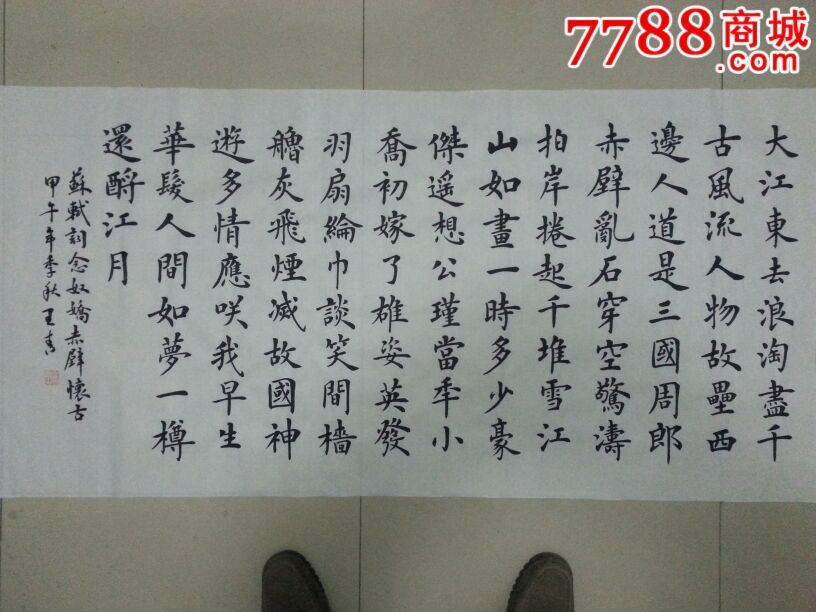 7788商城
大江東去浪淘盡千
古風流人物故壘西
邊人道是三國周郎
赤壁亂石穿空驚濤
拍岸捲起千堆雪江
山如畫一時多少豪
傑遥想公瑾當年小
喬初嫁了雄姿英發
羽扇綸巾談笑間檣
艣灰飛煙滅故國神
遊多情應咲我早生
華髮人間如夢一樽
還酹江月
蘇軾詞念奴嬌赤壁懷古
甲午年季秋王青